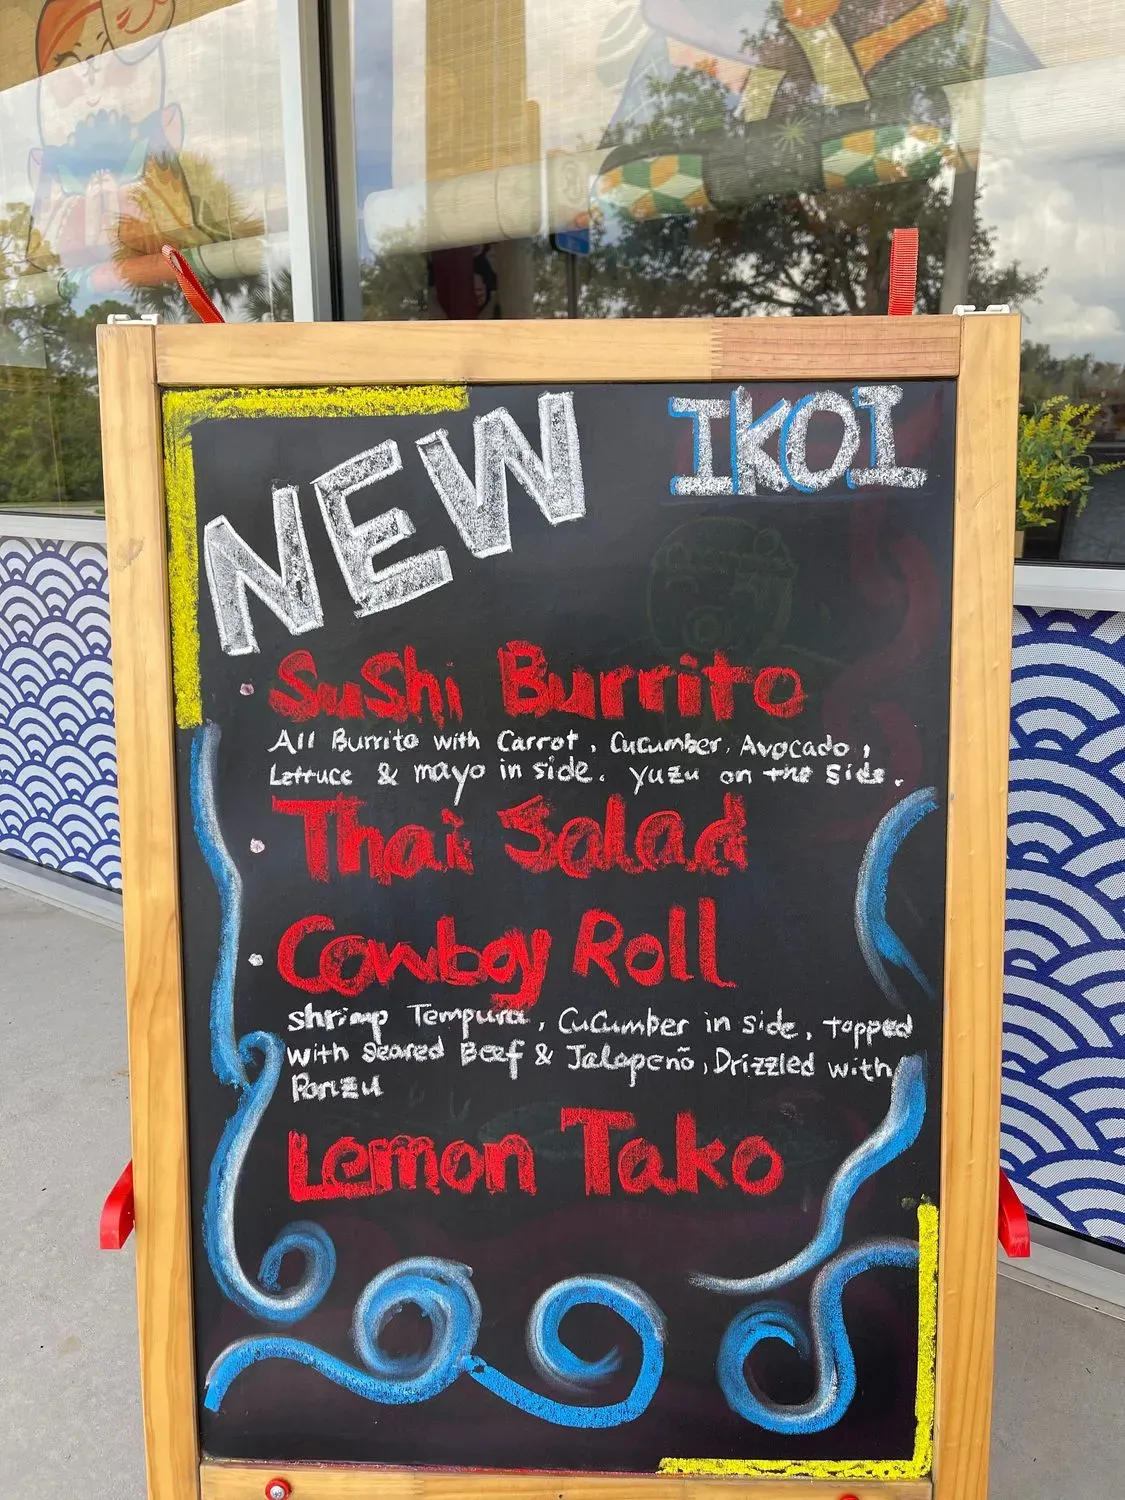 NEW
IKOI
• Sushi Burrito
All Burrito with Carrot, Cucumber, Avocado,
Lettuce & mayo in side. yuzu on the side.
• Thai Salad
• Cowboy Roll
shrimp Tempura, Cucumber in side, topped
with seared Beef & Jalapeño, Drizzled with
Ponzu
Lemon Tako